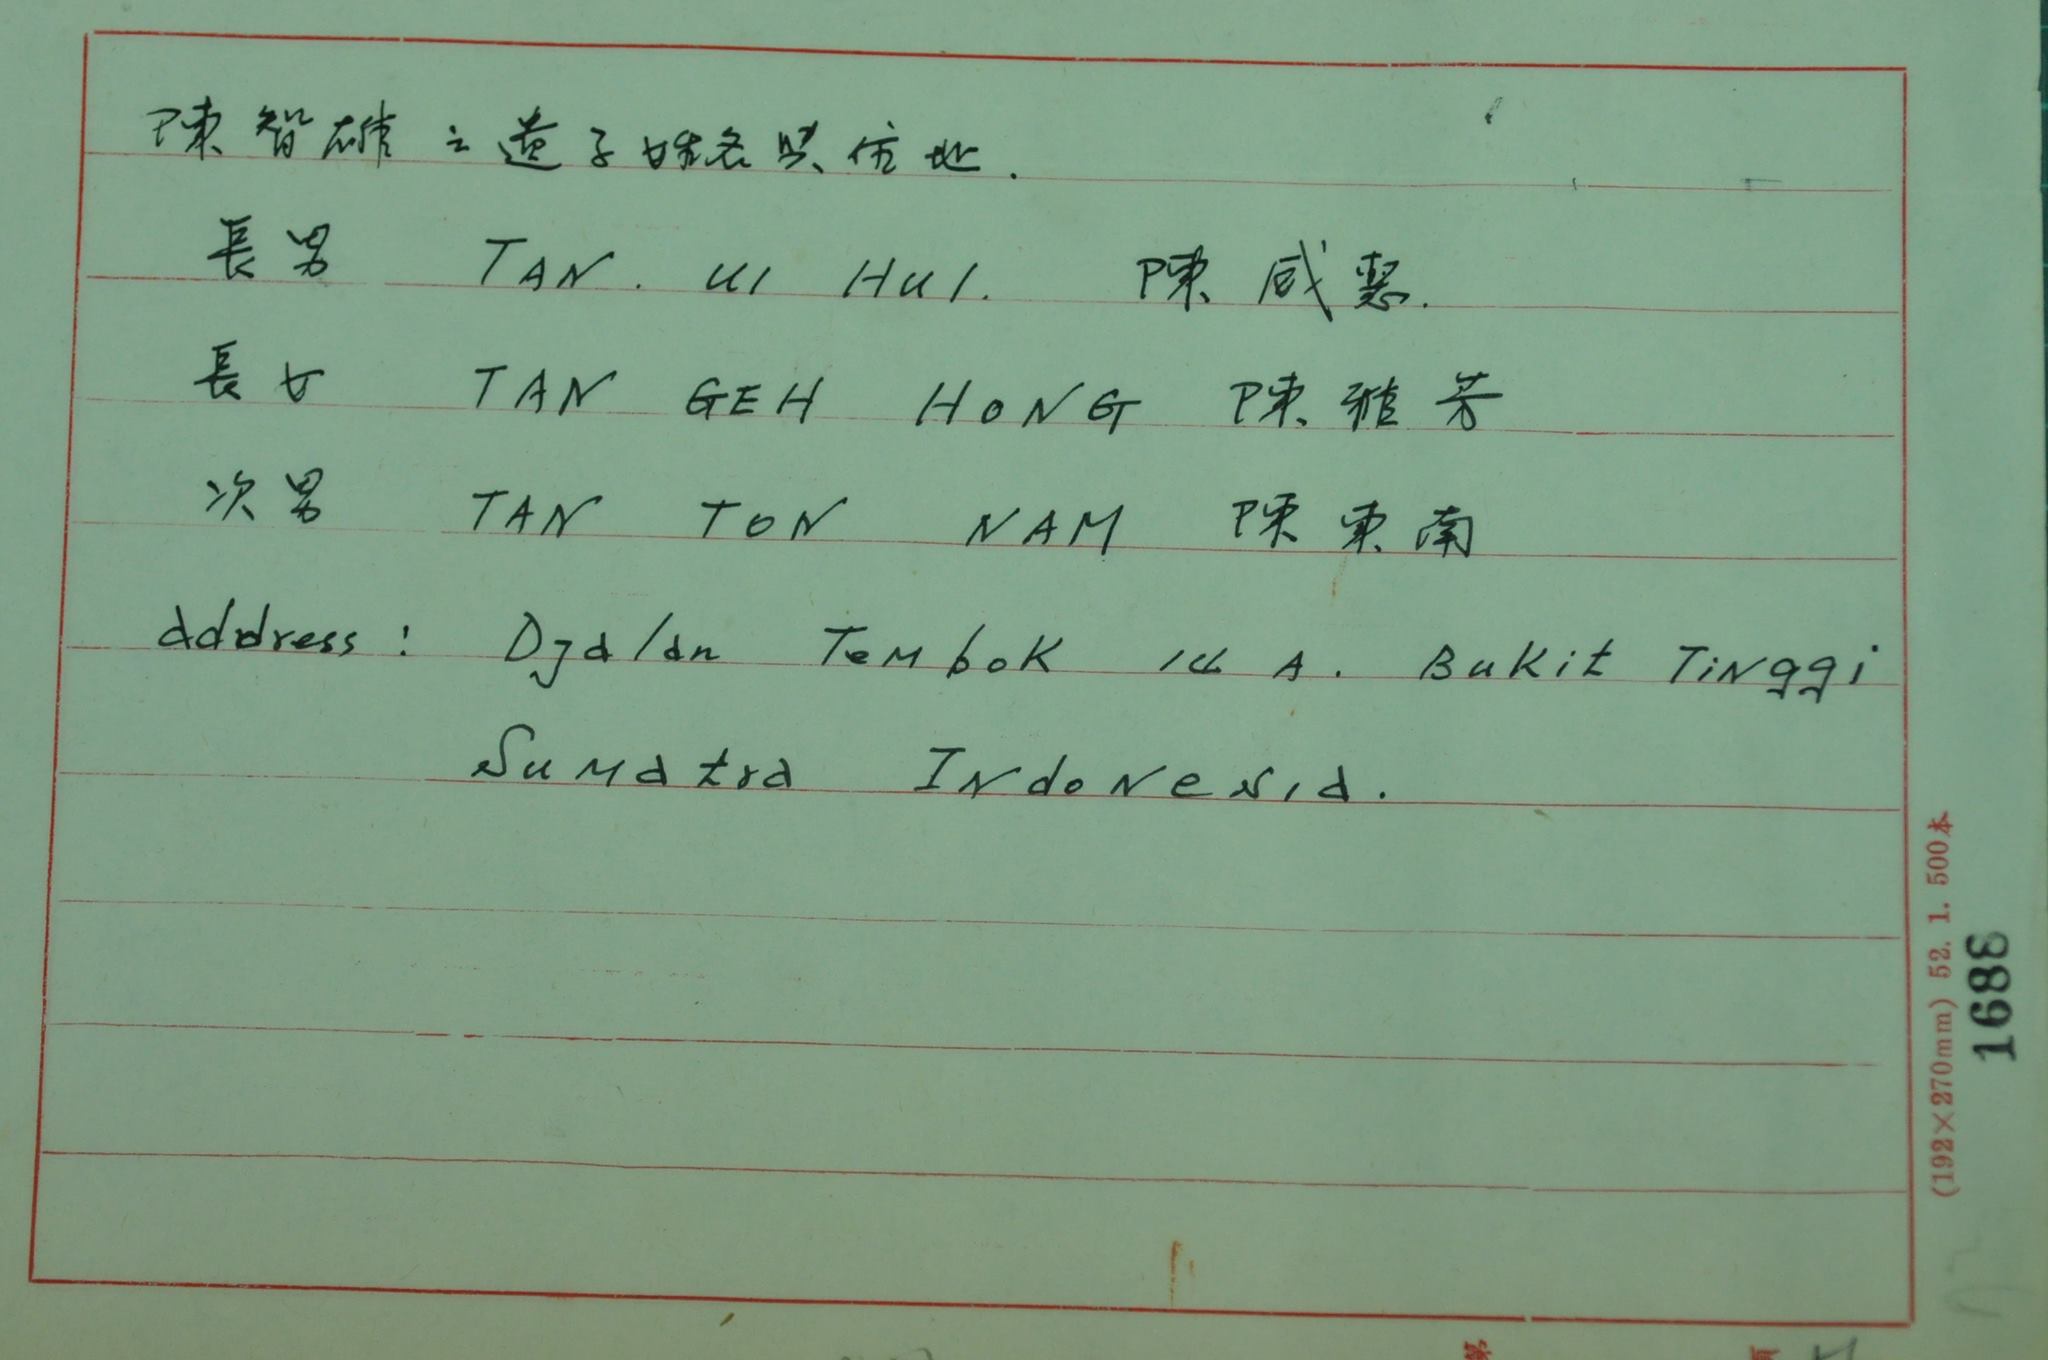 陳智雄之遺子姓名與住地.
長男 TAN. UI HUI. 陳威惠.
長女 TAN GEH HONG 陳雅芳
次男 TAN TON NAM 陳東南
address: Djalan Tembok 14 A. Bukit Tinggi
Sumatra Indonesia.
(192×270mm) 52. 1. 500本
1688
第 頁